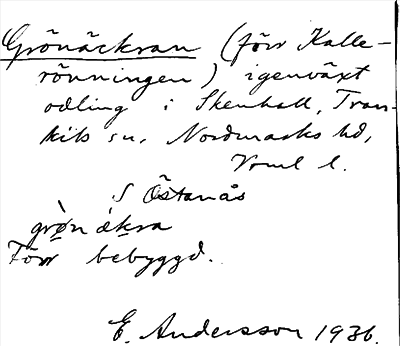 Grönäckran (förr Kalle-
rönningen) igenväxt
odling i Skenhall, Tran-
kils sn, Nordmarks hd,
Vrml l.
S Östanås
grø̀n ákra
Förr bebyggd.
E. Andersson 1936.